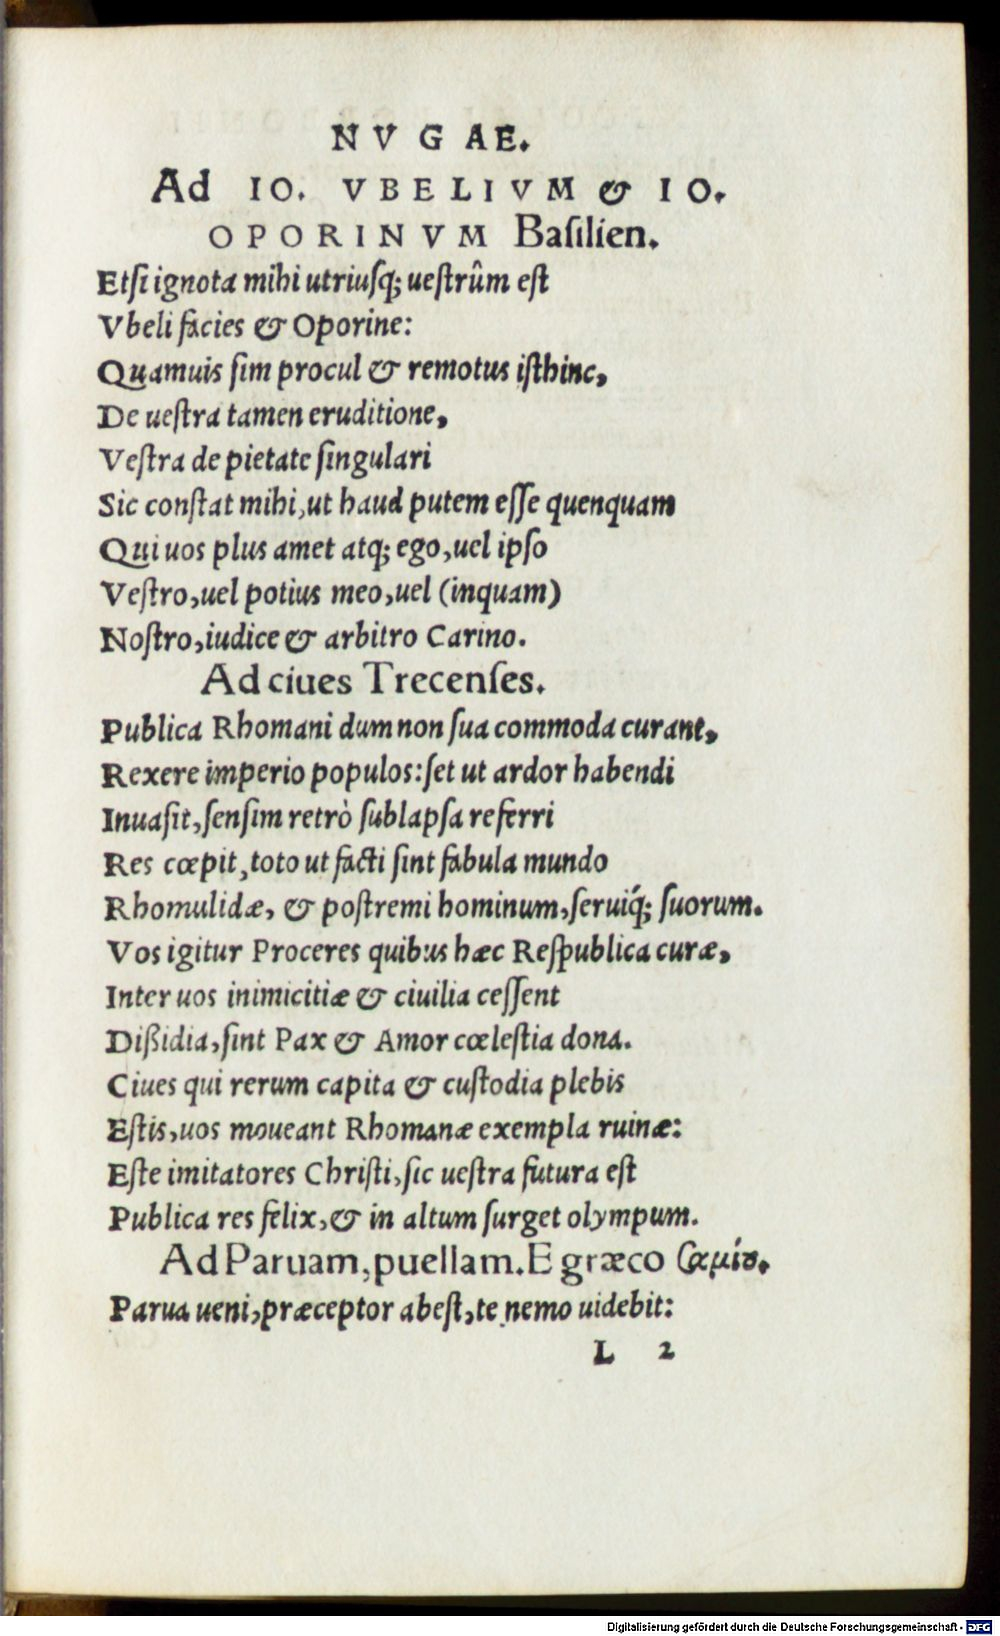 NVGAE.
Ad IO. VBELIVM & IO.
OPORINVM Basilien.
Etsi ignota mihi utriusq; uestrûm est
Vbeli facies & Oporine:
Quamuis sim procul & remotus isthinc,
De uestra tamen eruditione,
Vestra de pietate singulari
Sic constat mihi, ut haud putem esse quenquam
Qui uos plus amet atq; ego, uel ipso
Vestro, uel potius meo, uel (inquam)
Nostro, iudice & arbitro Carino.
Ad ciues Trecenses.
Publica Rhomani dum non sua commoda curant,
Rexere imperio populos: set ut ardor habendi
Inuasit, sensim retrò sublapsa referri
Res cœpit, toto ut facti sint fabula mundo
Rhomulidæ, & postremi hominum, seruiq́; suorum.
Vos igitur Proceres quibus hæc Respublica curæ,
Inter uos inimicitiæ & ciuilia cessent
Dißidia, sint Pax & Amor cœlestia dona.
Ciues qui rerum capita & custodia plebis
Estis, uos moueant Rhomanæ exempla ruinæ:
Este imitatores Christi, sic uestra futura est
Publica res felix, & in altum surget olympum.
Ad Paruam, puellam. E græco
Parua ueni, præceptor abest, te nemo uidebit:
L 2
Digitalisierung gefördert durch die Deutsche Forschungsgemeinschaft - DFG